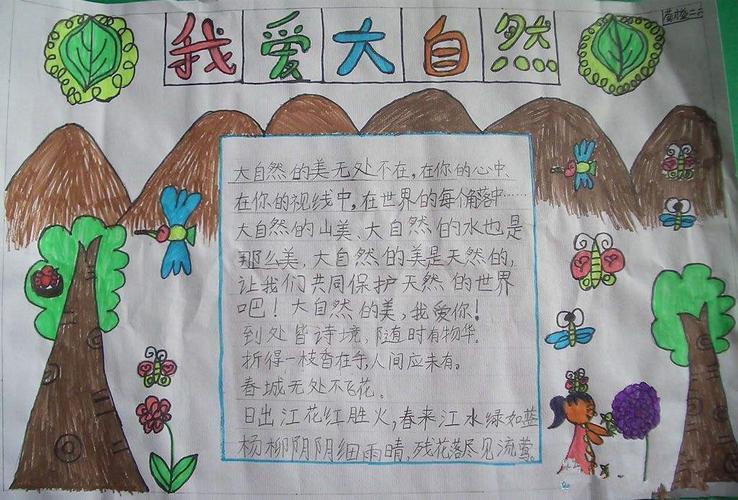 我爱大自然
大自然的美无处不在,在你的心中、
在你的视线中,在世界的每个角落中……
大自然的山美、大自然的水也是
那么美,大自然的美是天然的,
让我们共同保护天然的世界
吧!大自然的美,我爱你!
到处皆诗境,随时有物华.
折得一枝香在手,人间应未有。
春城无处不飞花。
日出江花红胜火,春来江水绿如蓝
杨柳阴阴细雨晴,残花落尽见流莺。